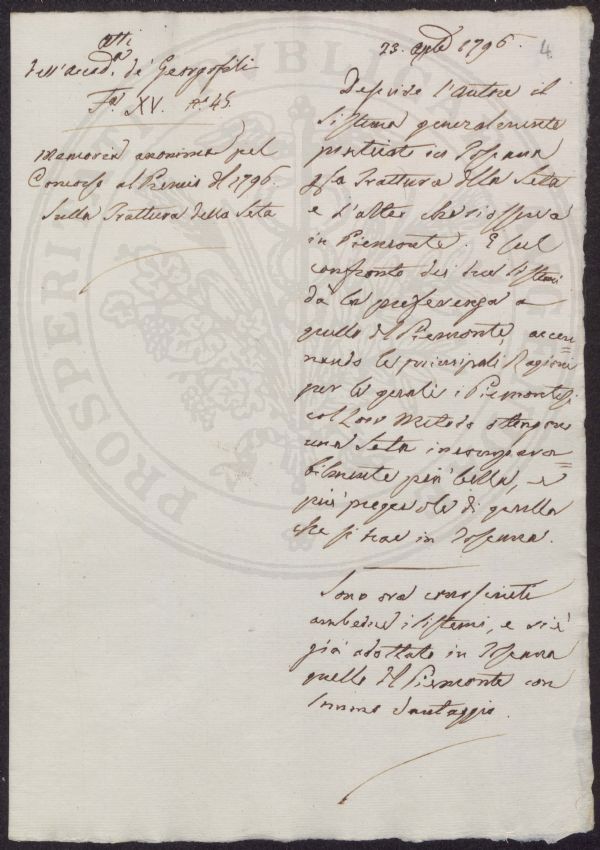 Atti
dell'Accad.a de' Georgofili
Fa. XV. No. 45.
Memoria anonima pel
Concorso al Premio del 1796.
Sulla Trattura della Seta
23. 1796. 4
Descrive l'Autore il
sistema generalmente
praticato in Toscana
p la Trattura della Seta
e l'altro che si osserva
in Piemonte. E sul
confronto dei due sistemi
dà la preferenza a
quello del Piemonte, accen=
nando le principali Ragioni
per le quali i Piemontesi
col Loro Metodo ottengono
una Seta incompara=
bilmente più bella, e
più pregevole di quella
che si trae in Toscana.
Sono ora conosciuti
ambedue i sistemi, e si è
già adottato in Toscana
quello del Piemonte con
sommo vantaggio.
PROSPERITÀ PUBLICA